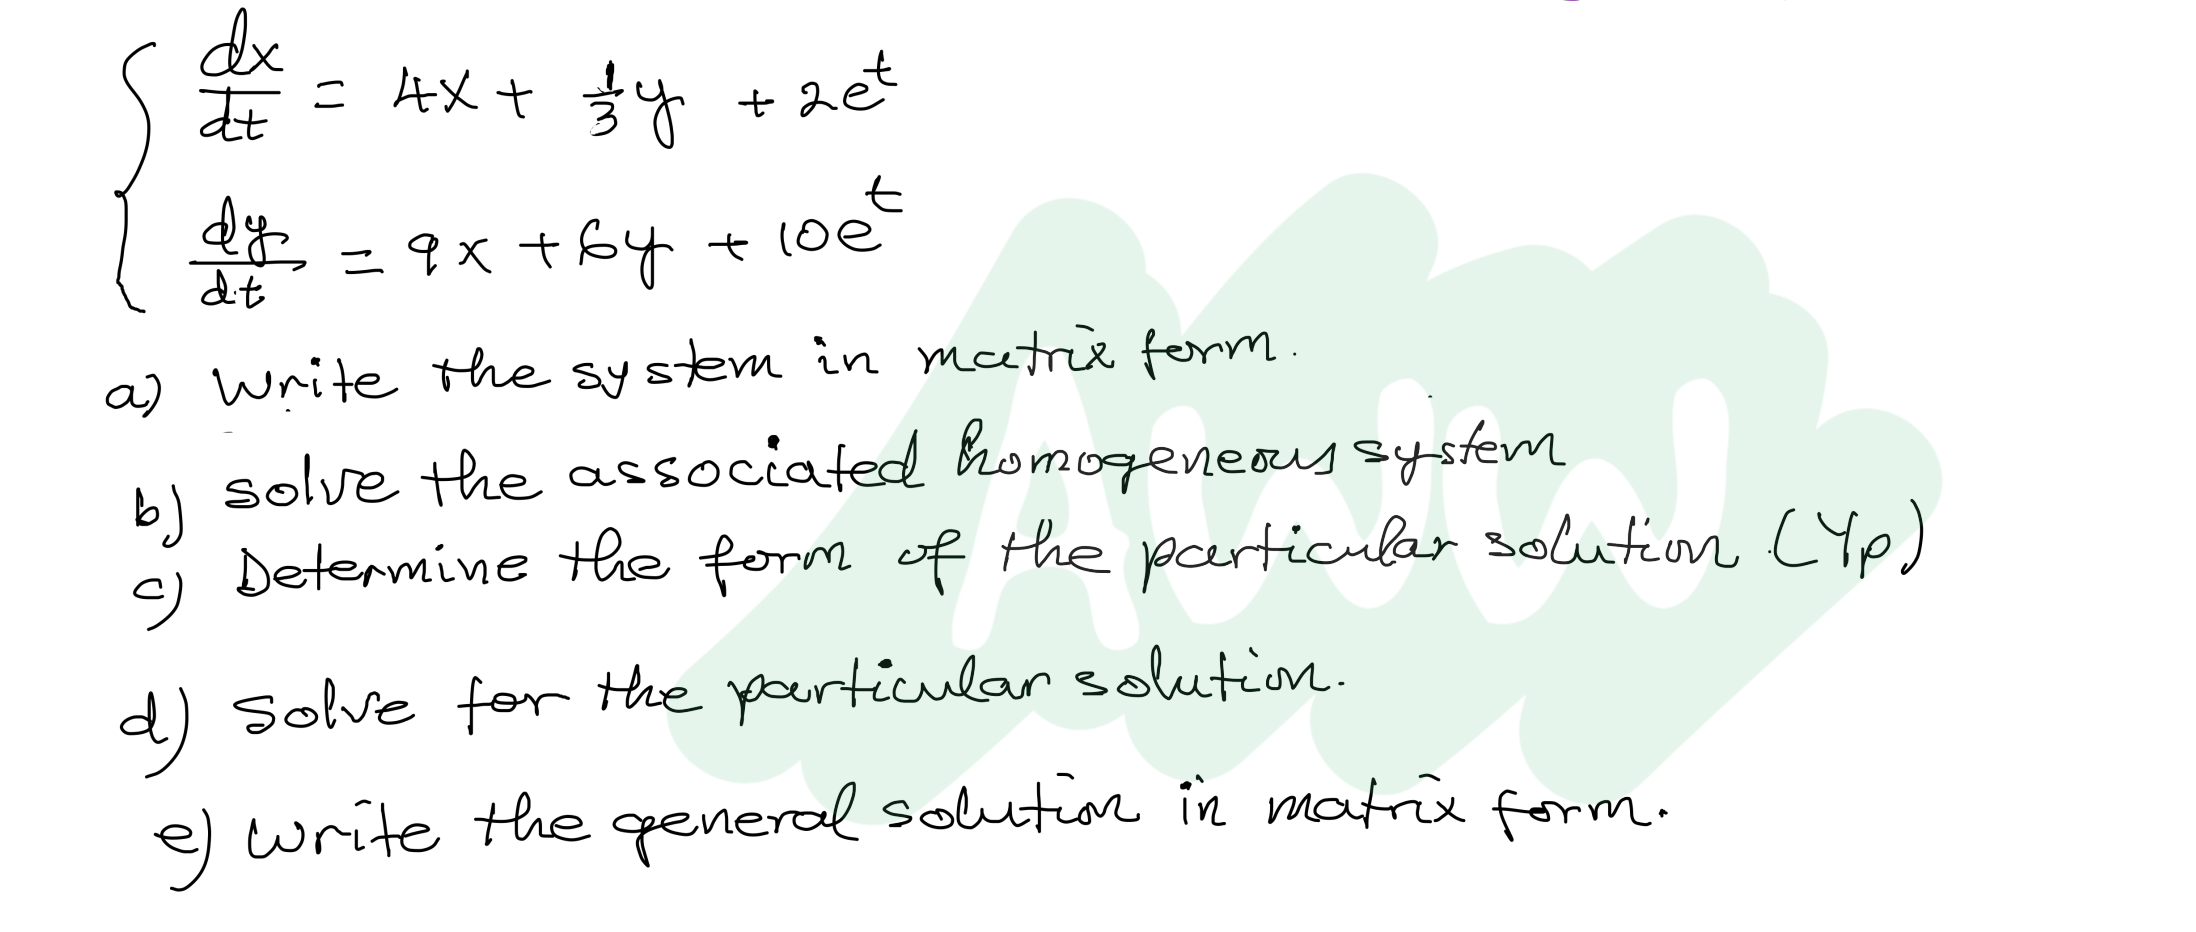 dx/dt = 4x + 1/3 y + 2e^t
dy/dt = 9x + 6y + 10e^t
a) Write the system in matrix form.
b) solve the associated homogeneous system
c) Determine the form of the particular solution (Yp)
d) solve for the particular solution.
e) write the general solution in matrix form.
AWW